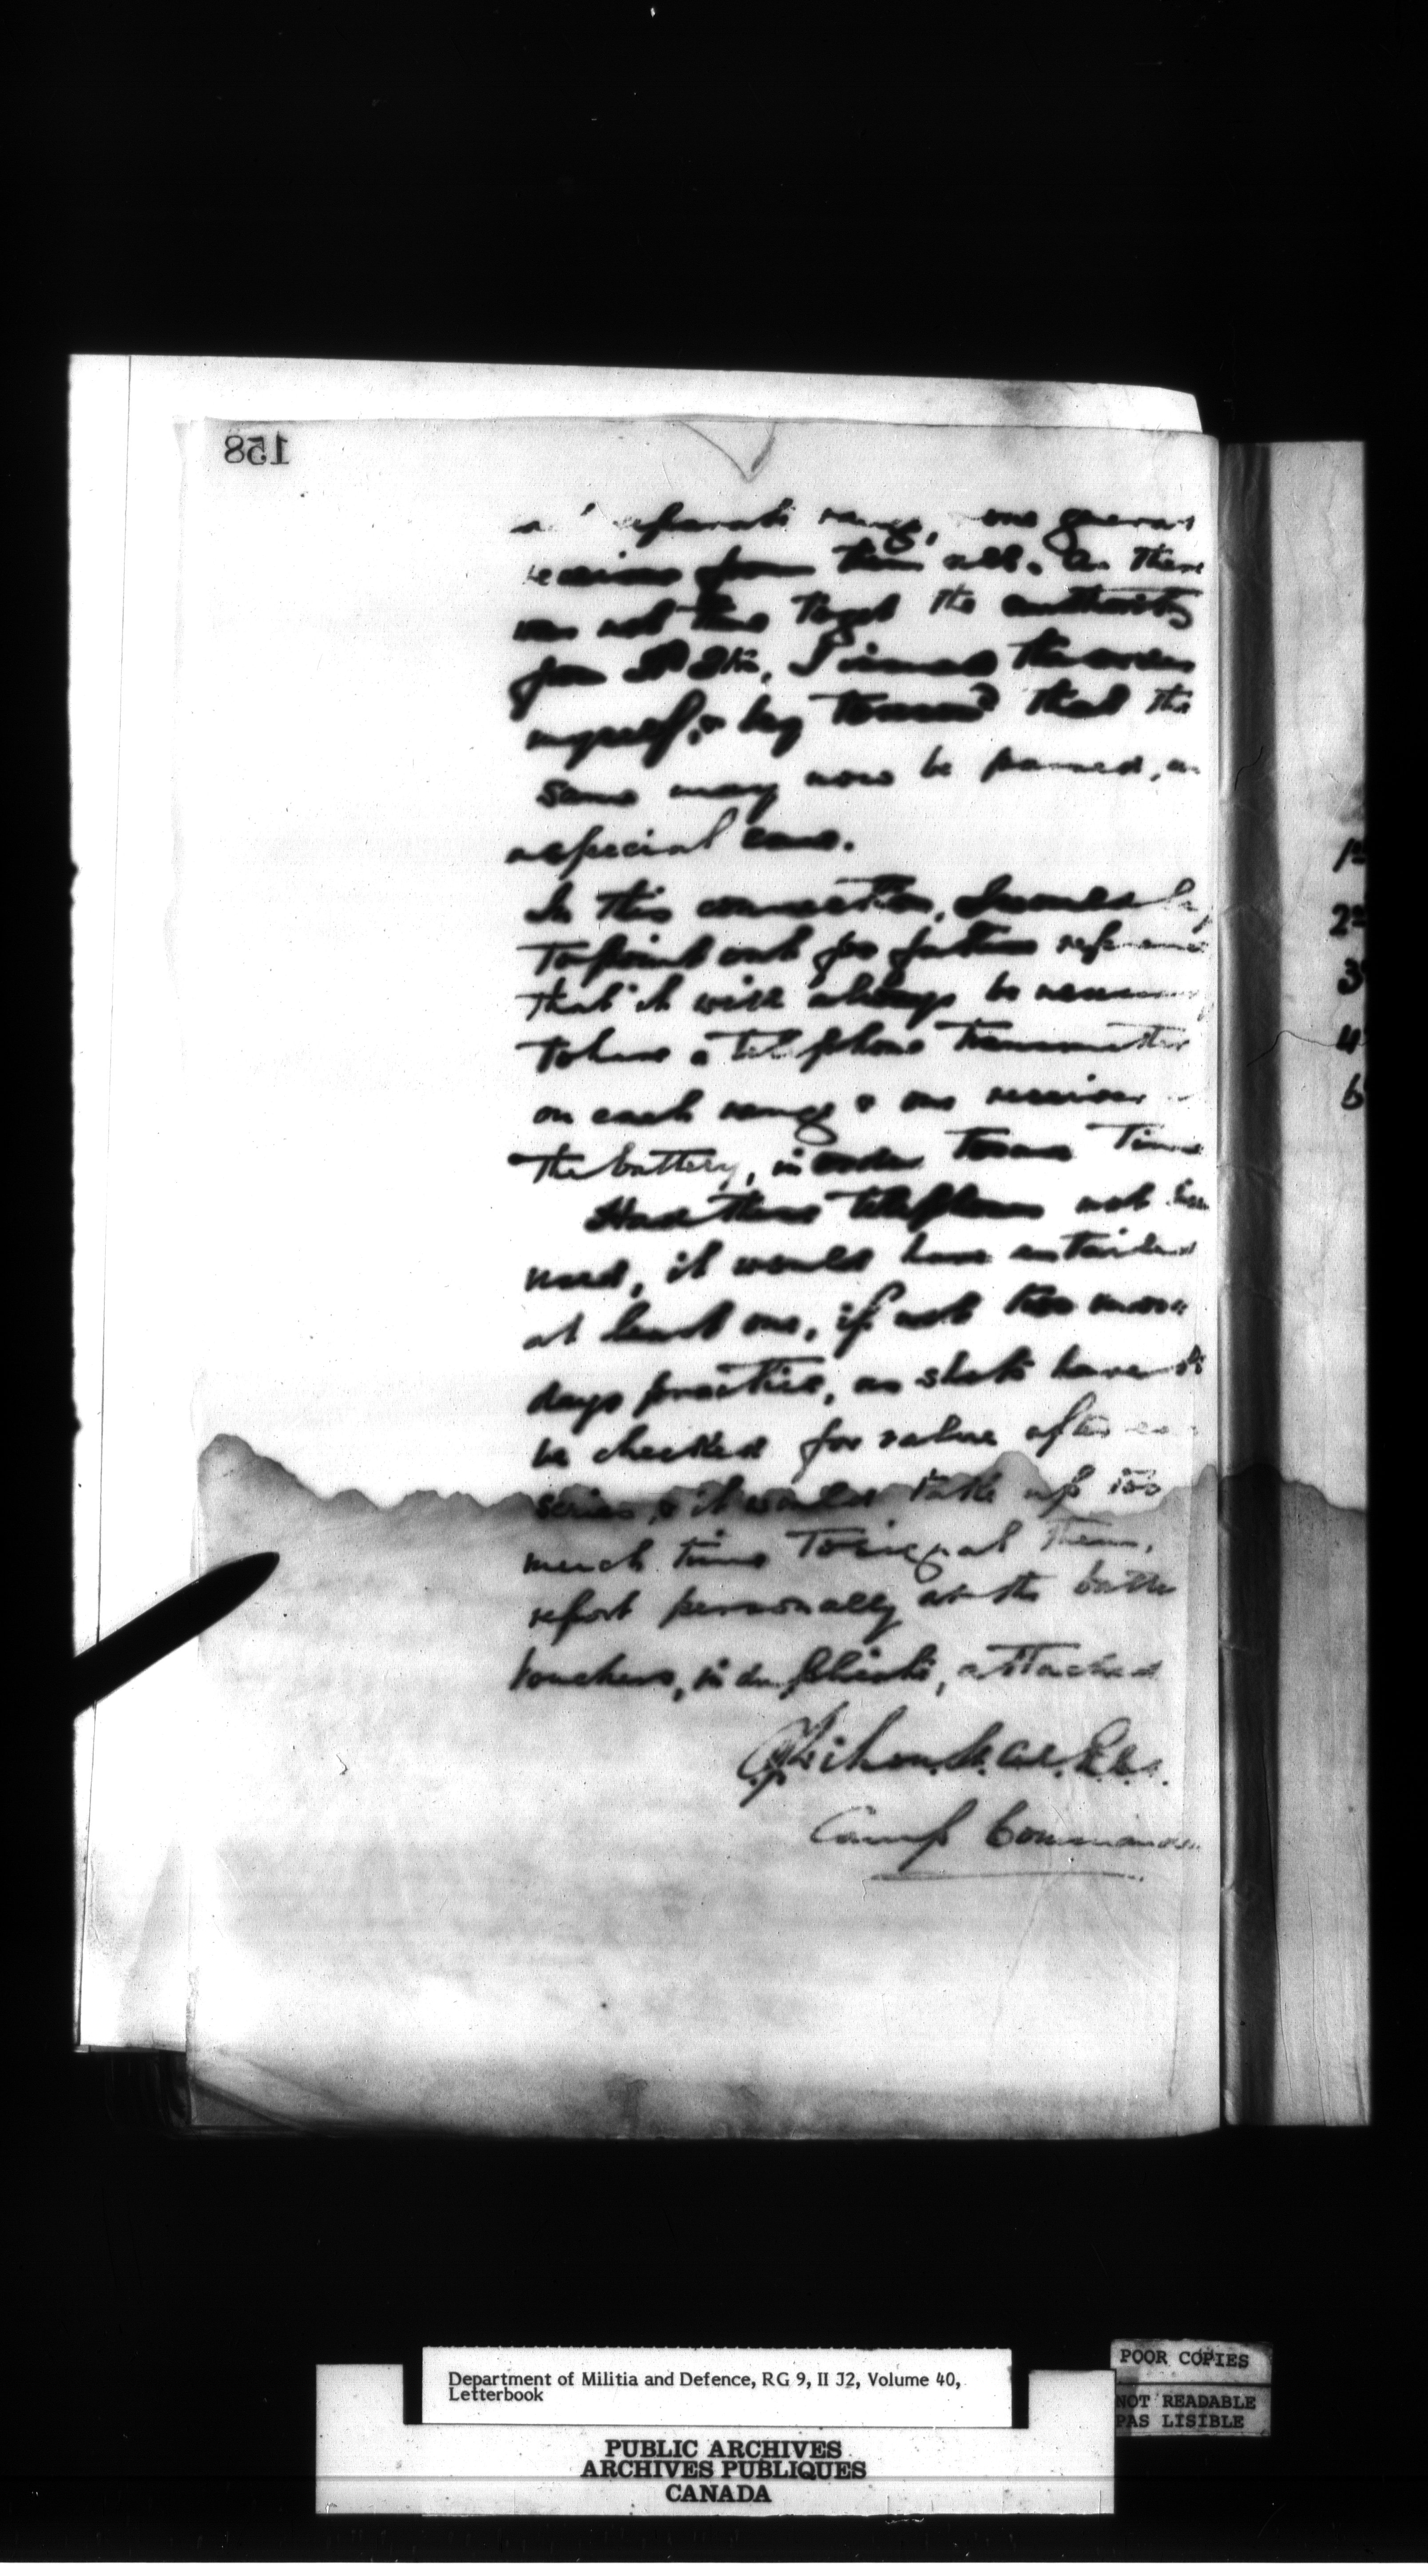 158
separate range, one general
receiver from them all. As there
was not time to get the authority
from I issued the order
myself, & beg to recom'd that the
same may now be passed, as
a special case.
In this connection, I would beg
to point out for future reference
that it will always be necessary
to have a telephone transmitter
on each range & one receiver
the battery, in order to save time
Had these telephones not been
used, it would have entailed
at least one, if not two more
days practice, as shots have to
be checked for value after
series, & it would take up too
much time to signal them,
report personally at the
vouchers, in duplicate, attached
Camp Commandant
1st
2nd
3
4
6
Department of Militia and Defence, RG 9, II J2, Volume 40,
Letterbook
POOR COPIES
NOT READABLE
PAS LISIBLE
PUBLIC ARCHIVES
ARCHIVES PUBLIQUES
CANADA